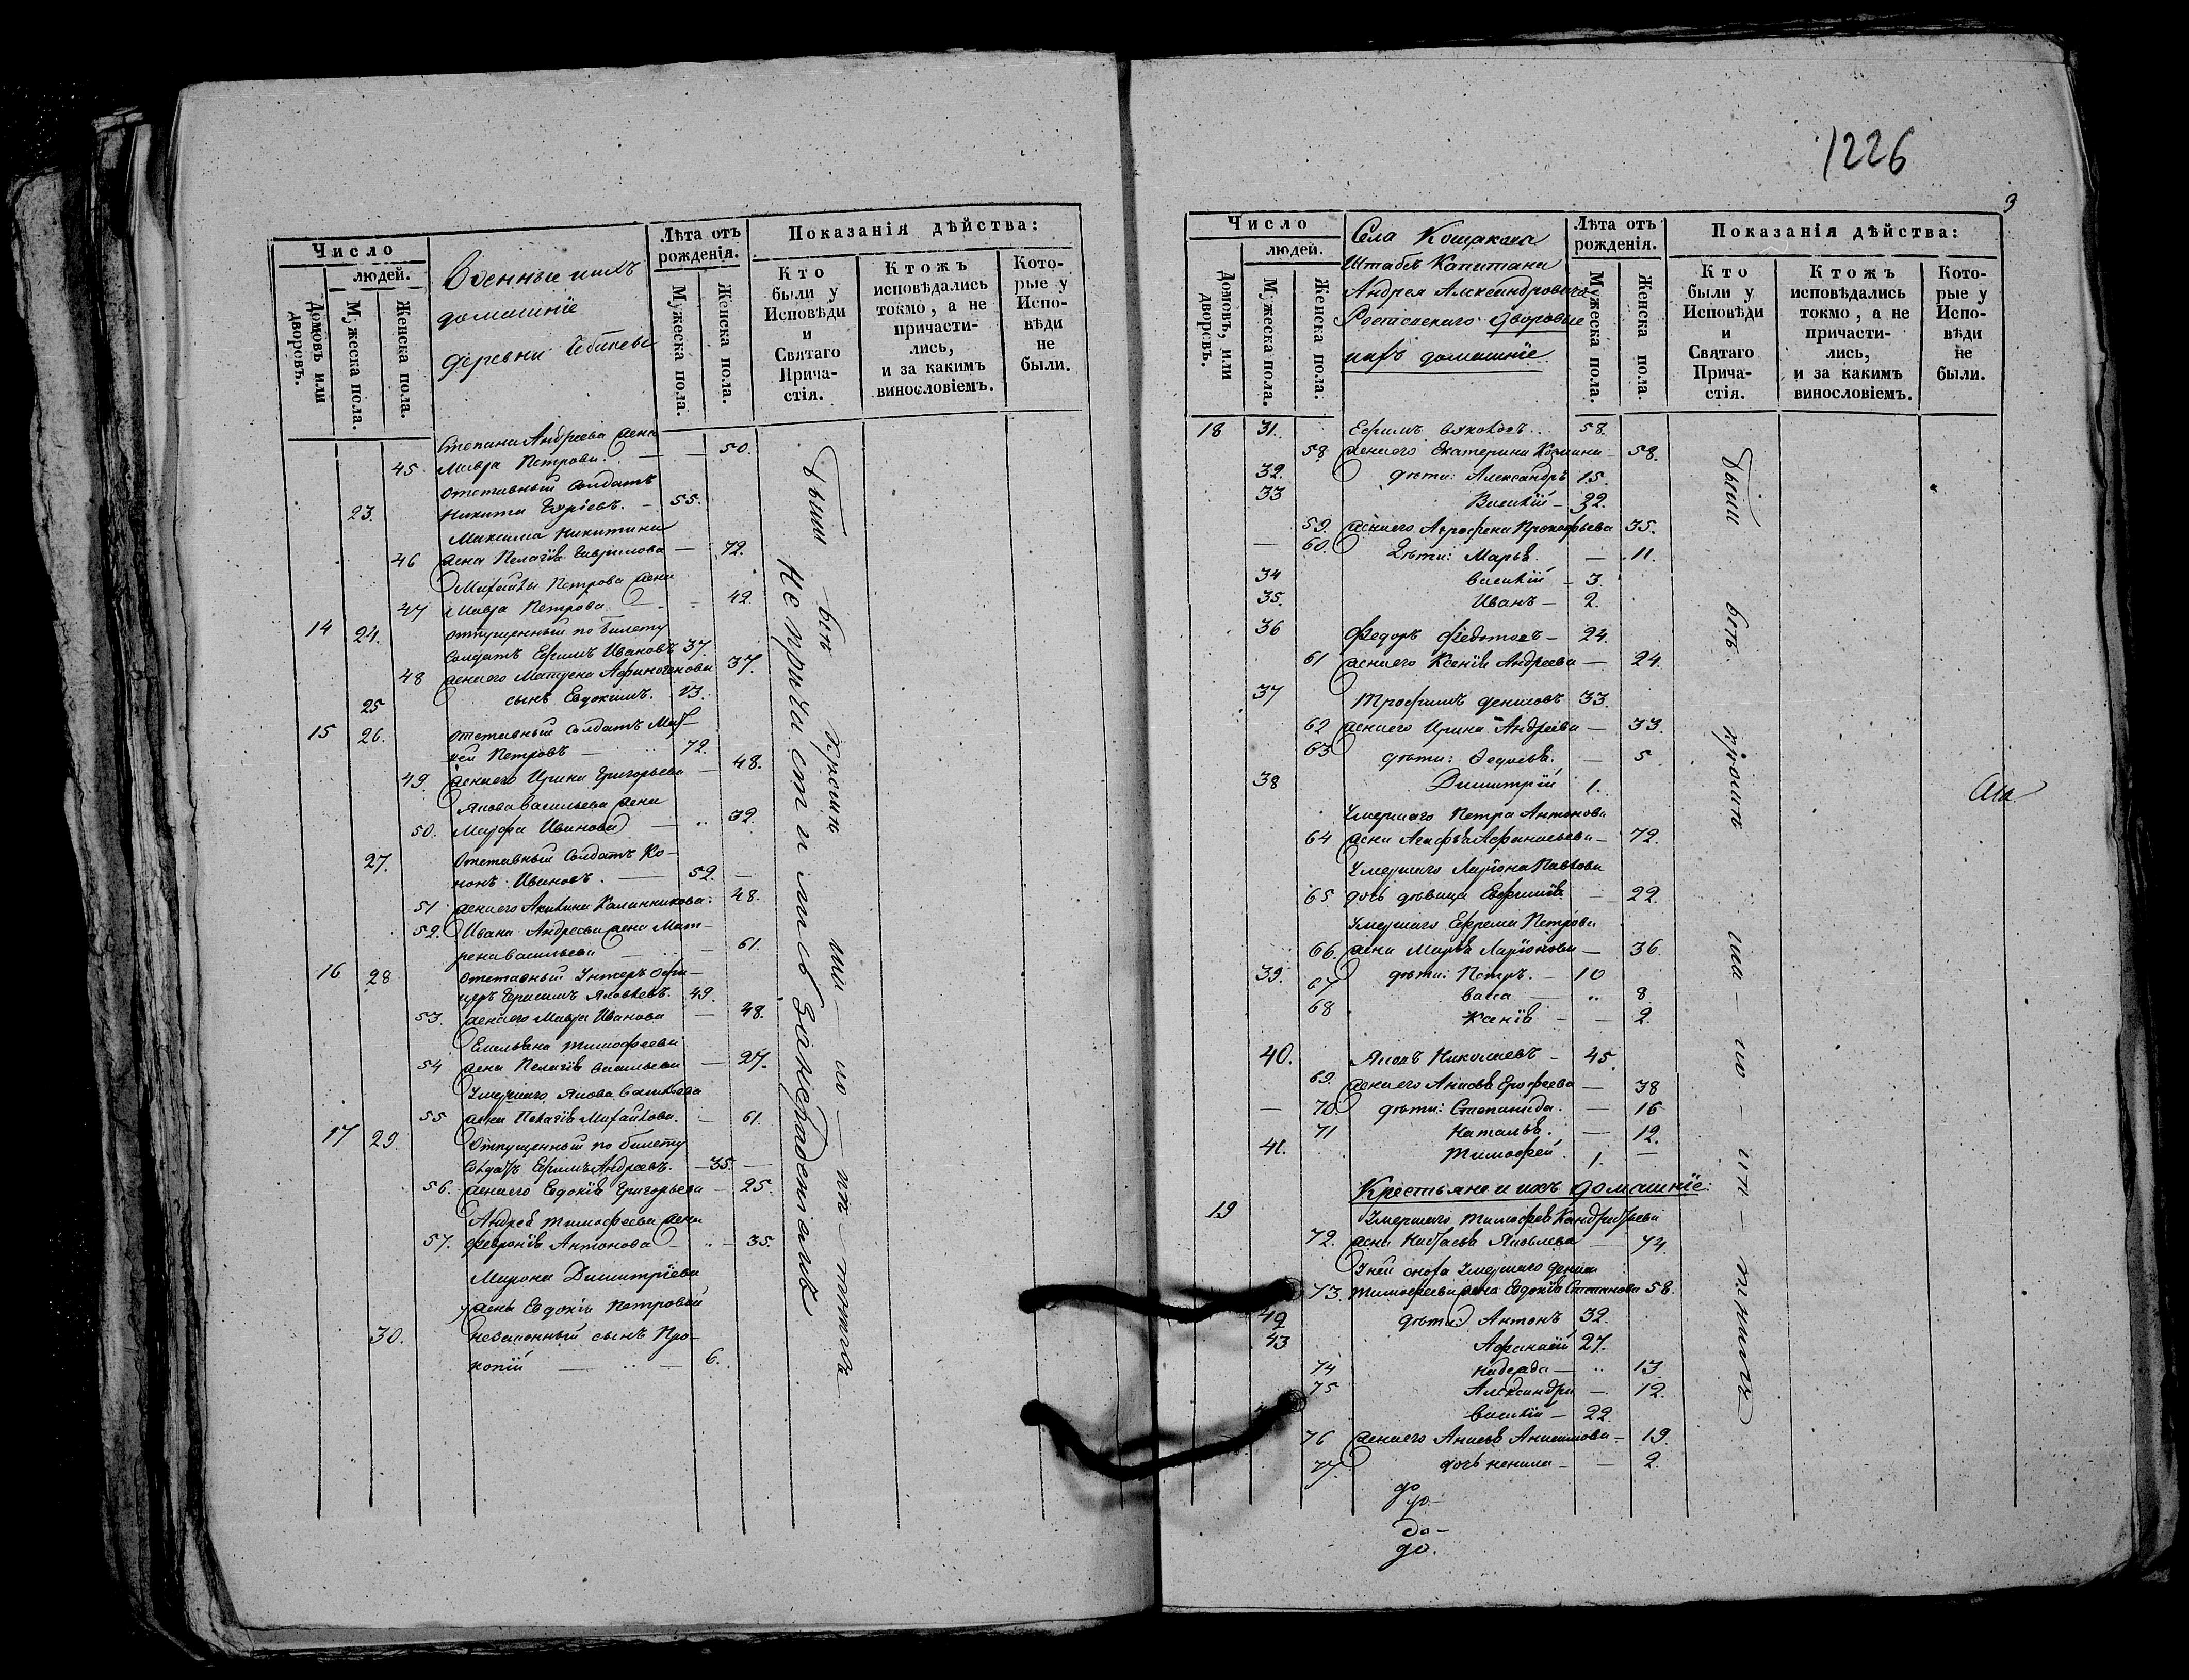 Число
людей.
Домовъ или дворовъ.
Мужеска пола.
Женска пола.
Военные ихъ
домашніе
деревни
Лѣта отъ рожденія.
Мужеска пола.
Женска пола.
Показанія дѣйства:
Кто были у Исповѣди и Святаго Прича-стія.
Ктожъ исповѣдались токмо, а не причасти-лись, и за какимъ винословіемъ.
Кото-рые у Испо-вѣди не были.
Степана Андреева жена
45 Мавра Петрова. — — 50.
отставный Солдатъ
23. Никита — 55.
Максима Никитина
46 жена Пелагія Гаврилова — 72.
Михайлы Петрова жена
47 Мавра Петрова — 42.
14 24. отпущенный по билету
Солдатъ Ефимъ Ивановъ 37.
48 жена его Матрена 37.
25 сынъ Евдокимъ. 13.
15 26. отставный Солдатъ
Петровъ — 72.
49. жена его Ирина Григорьева — 48.
Якова Васильева жена
50. Марфа Иванова — 32.
27. Отставный Солдатъ Ко-
нонъ Ивановъ. — 52. —
51 жена его Акилина Калинникова. 48.
52. Ивана Андреева жена Мат-
рена Васильева — 61.
16 28 отставный Унтеръ Офи-
церъ Герасимъ Яковлевъ. 49.
53. жена его Мавра Иванова — 48.
Емельяна Тимофеева
54 жена Пелагія Васильева — 27.
Умершаго Якова Васильева
55 жена Пелагія Михайлова. — 61.
17 29. Отпущенный по билету
Солдатъ Ефимъ Андреевъ. — 35. —
56. жена его Евдокія Григорьева — 25.
Андрея Тимофеева жена
57. Февронія Антонова — 35.
Мирона Димитріева
жены Евдокіи Петровой
30. незаконный сынъ Про-
копій — 6.
были всѣ кромѣ
Не причастились за нерадѣніемъ
1226
3
Число
людей.
Домовъ, или дворовъ.
Мужеска пола.
Женска пола.
Села Кощакова
Штабсъ Капитана
Андрея Александровича
Ростовскаго Дворовые
ихъ домашніе.
Лѣта отъ рожденія.
Мужеска пола.
Женска пола.
Показанія дѣйства:
Кто были у Исповѣди и Святаго Прича-стія.
Ктожъ исповѣдались токмо, а не причасти-лись, и за какимъ винословіемъ.
Кото-рые у Испо-вѣди не были.
18 31. Ефимъ Яковлевъ.. 58.
58 жена его Екатерина Козмина — 58.
32. дѣти: Александръ 15.
33 Василій — 32.
59 жена его Агрофена Прокофьева 35.
— 60. Дѣти: Марья. — 11.
34 Василій — 3.
35. Иванъ — 2.
36 Федоръ Федотовъ — 24.
61 жена его Ксенія Андреева — 24.
37 Трофимъ Денисовъ 33.
62 жена его Ирина Андреева — 33.
63 дѣти: Федосья. — 5
38 Димитрій 1.
Умершаго Петра Антонова
64 жена Агафья Афанасьева — 72.
Умершаго Ларіона Павлова
65 дочь дѣвица Евфимія — 22.
Умершаго Ефрема Петрова
66. жена Марья Ларіонова — 36.
39. дѣти: Петръ. — 10
67 Васса — 8.
68 Ксенія — 2.
40. Яковъ Николаевъ — 45.
69. жена его Анисья Ерофеева — 38
— 70. дѣти: Степанида. — 16
71 Наталья. — 12.
41. Тимофей. 1. —
Крестьяне и ихъ домашніе:
19 Умершаго Тимофея Кондратьева
72. жена Настасья Яковлева — 74
У ней сноха Умершаго Дениса
73. Тимофеева жена Евдокія Степанова 58.
42 дѣти Антонъ 32.
43 Афанасій 27.
74 Надежда — 13
75 Александра — 12.
Василій — 22.
76 жена его Анисья Анисимова — 19.
77. дочь Ненила — 2.
были всѣ кромѣ
до